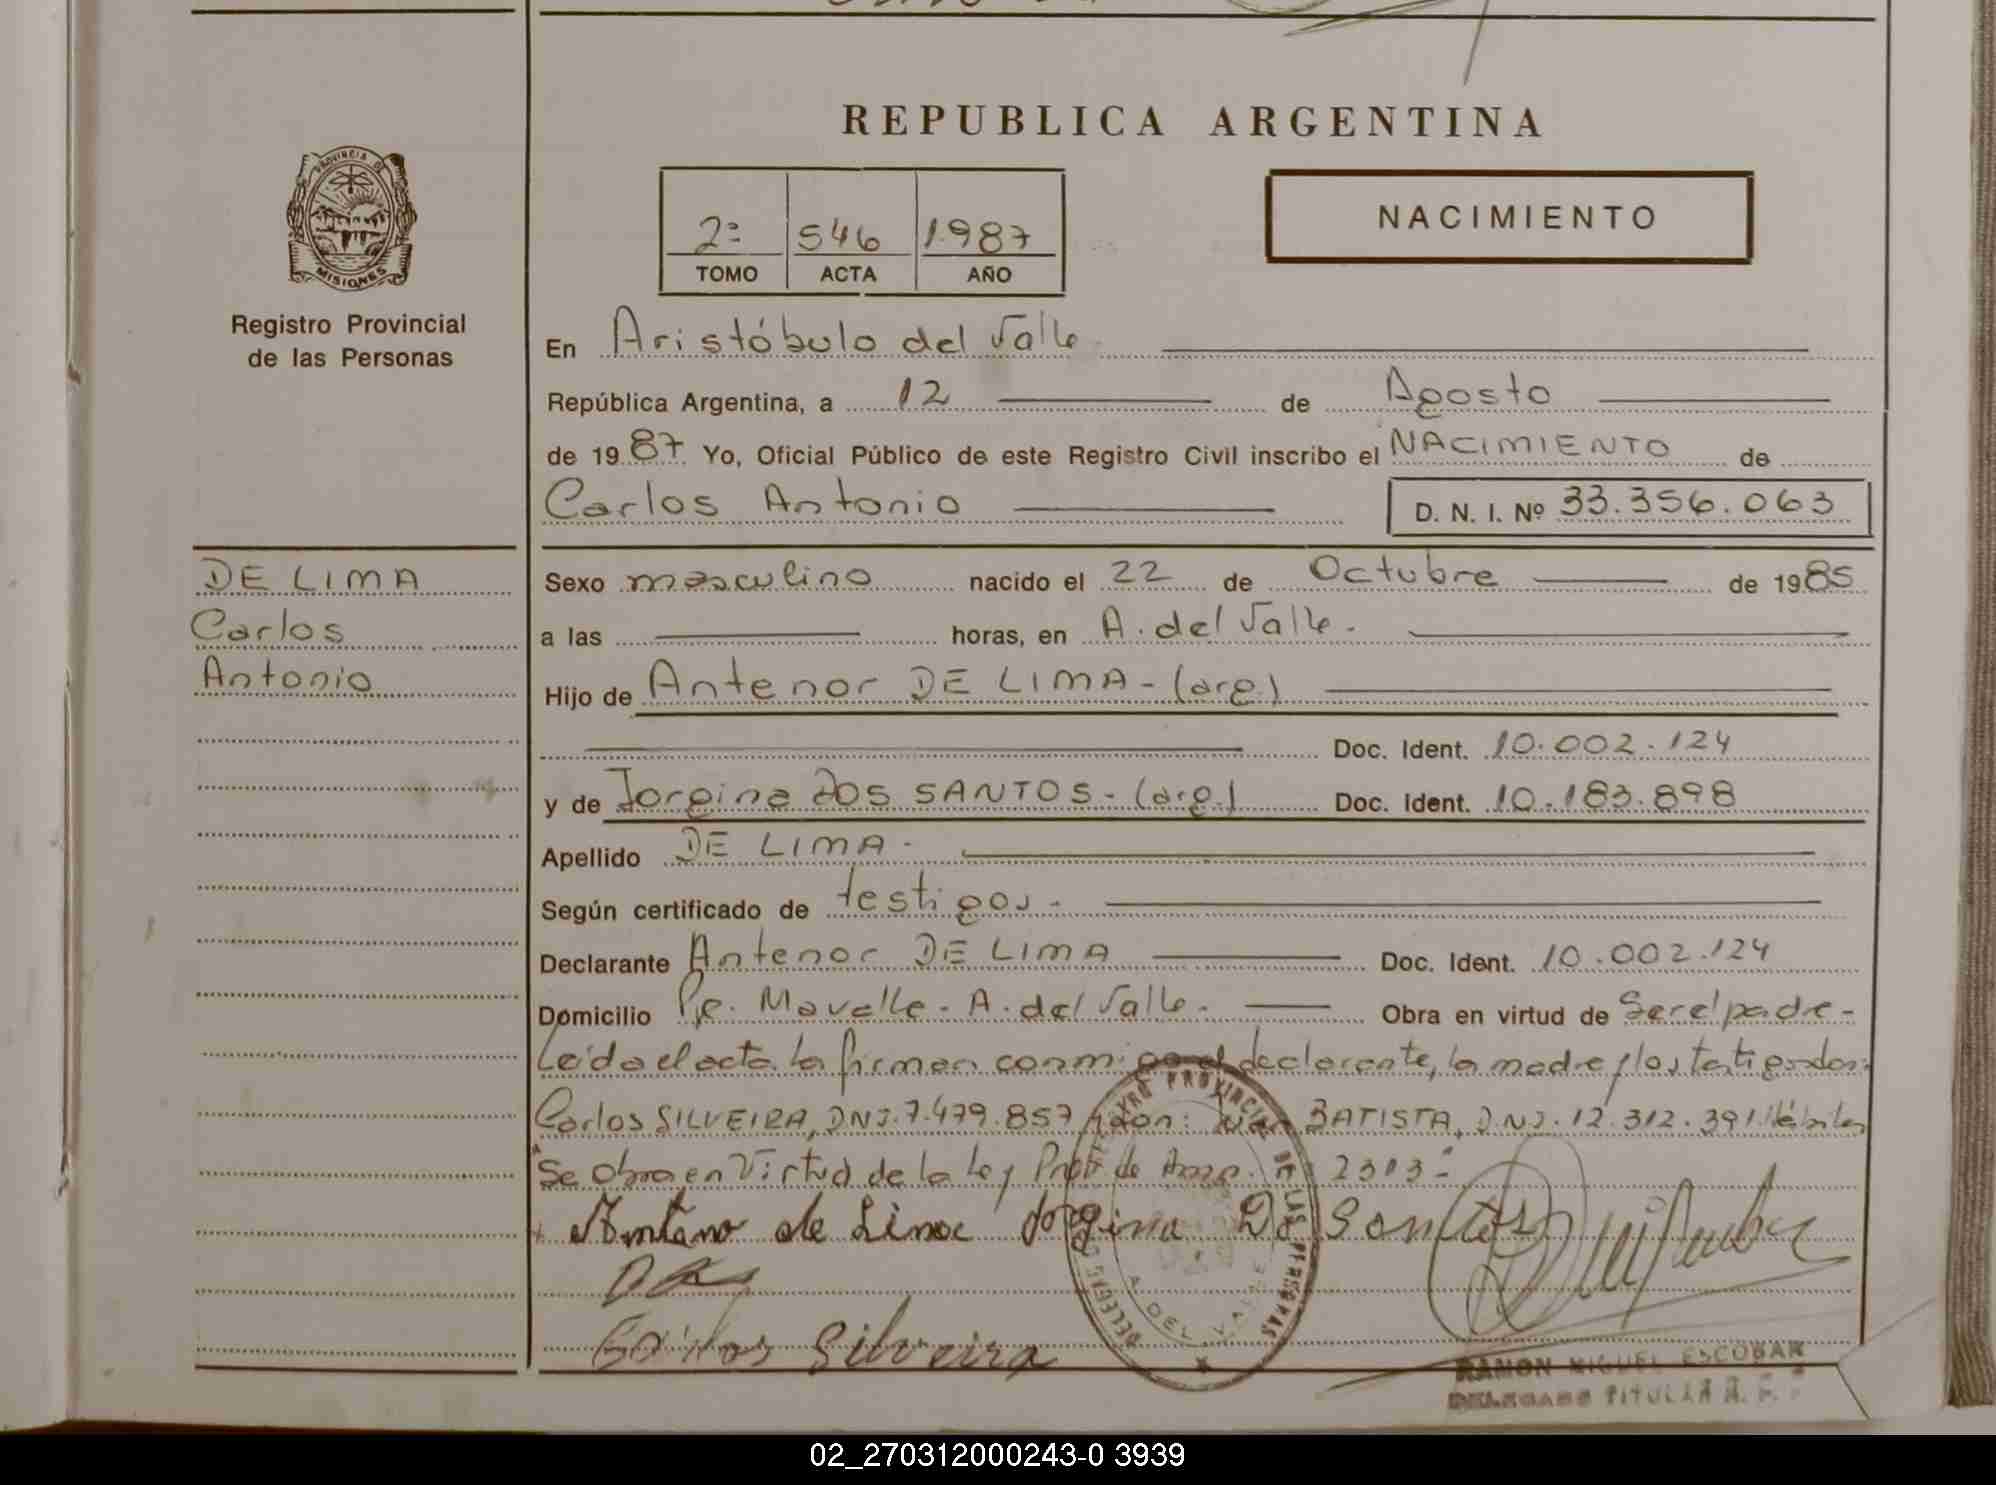 REPUBLICA ARGENTINA
PROVINCIA DE
MISIONES
Registro Provincial
de las Personas
2º 546 1.987
TOMO ACTA AÑO
NACIMIENTO
En Aristóbulo del Valle
República Argentina, a 12 de Agosto
de 1987 Yo, Oficial Público de este Registro Civil inscribo el NACIMIENTO de
Carlos Antonio D. N. I. Nº 33.356.063
DE LIMA
Carlos
Antonio
Sexo masculino nacido el 22 de Octubre de 1985
a las horas, en A. del Valle.
Hijo de Antenor DE LIMA - (arg)
Doc. Ident. 10.002.124
y de Jorgina DOS SANTOS - (arg) Doc. Ident. 10.183.898
Apellido DE LIMA -
Según certificado de testigos -
Declarante Antenor DE LIMA Doc. Ident. 10.002.124
Domicilio A. del Valle. Obra en virtud de Ser el padre -
Leída el acta la firman conmigo el declarante, la madre y los testigos don:
Carlos SILVEIRA, DNI. 7.479.857 y don: BATISTA, DNI. 12.312.391 hábiles
Se obra en Virtud de la Ley Prov. de 2303 -
de Lima Jorgina Do Santos
Carlos Silveira
REGISTRO PROVINCIAL DE LAS PERSONAS
A. DEL VALLE
RAMON MIGUEL ESCOBAR
DELEGADO TITULAR R. P. P.
02_270312000243-0 3939